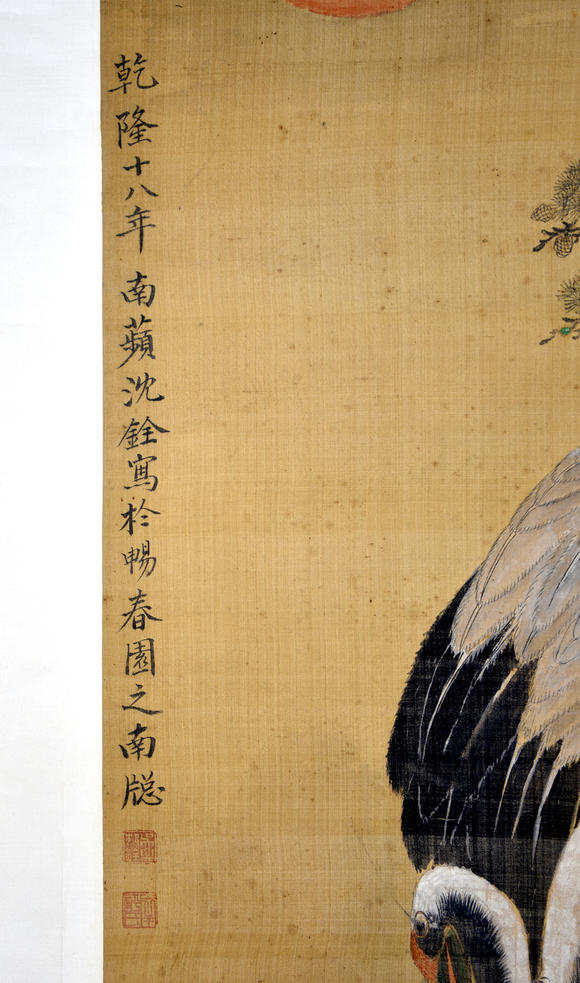 乾隆十八年南蘋沈銓寫於暢春園之南牕